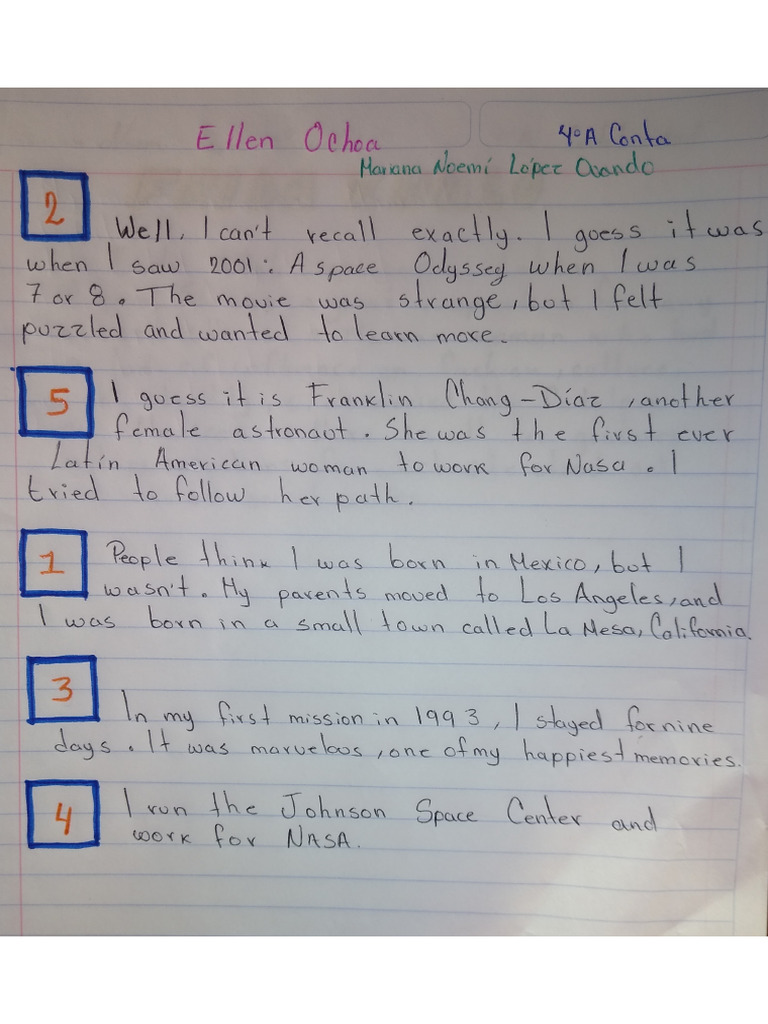 Ellen Ochoa
4°A Conta
Mariana Noemí López Ovando
2
Well, I can't recall exactly. I guess it was
when I saw 2001: A space Odyssey when I was
7 or 8. The movie was strange, but I felt
puzzled and wanted to learn more.
5
I guess it is Franklin Chang-Díaz, another
female astronaut. She was the first ever
Latin American woman to work for Nasa. I
tried to follow her path.
1
People think I was born in Mexico, but I
wasn't. My parents moved to Los Angeles, and
I was born in a small town called La Mesa, California.
3
In my first mission in 1993, I stayed for nine
days. It was marvelous, one of my happiest memories.
4
I run the Johnson Space Center and
work for NASA.